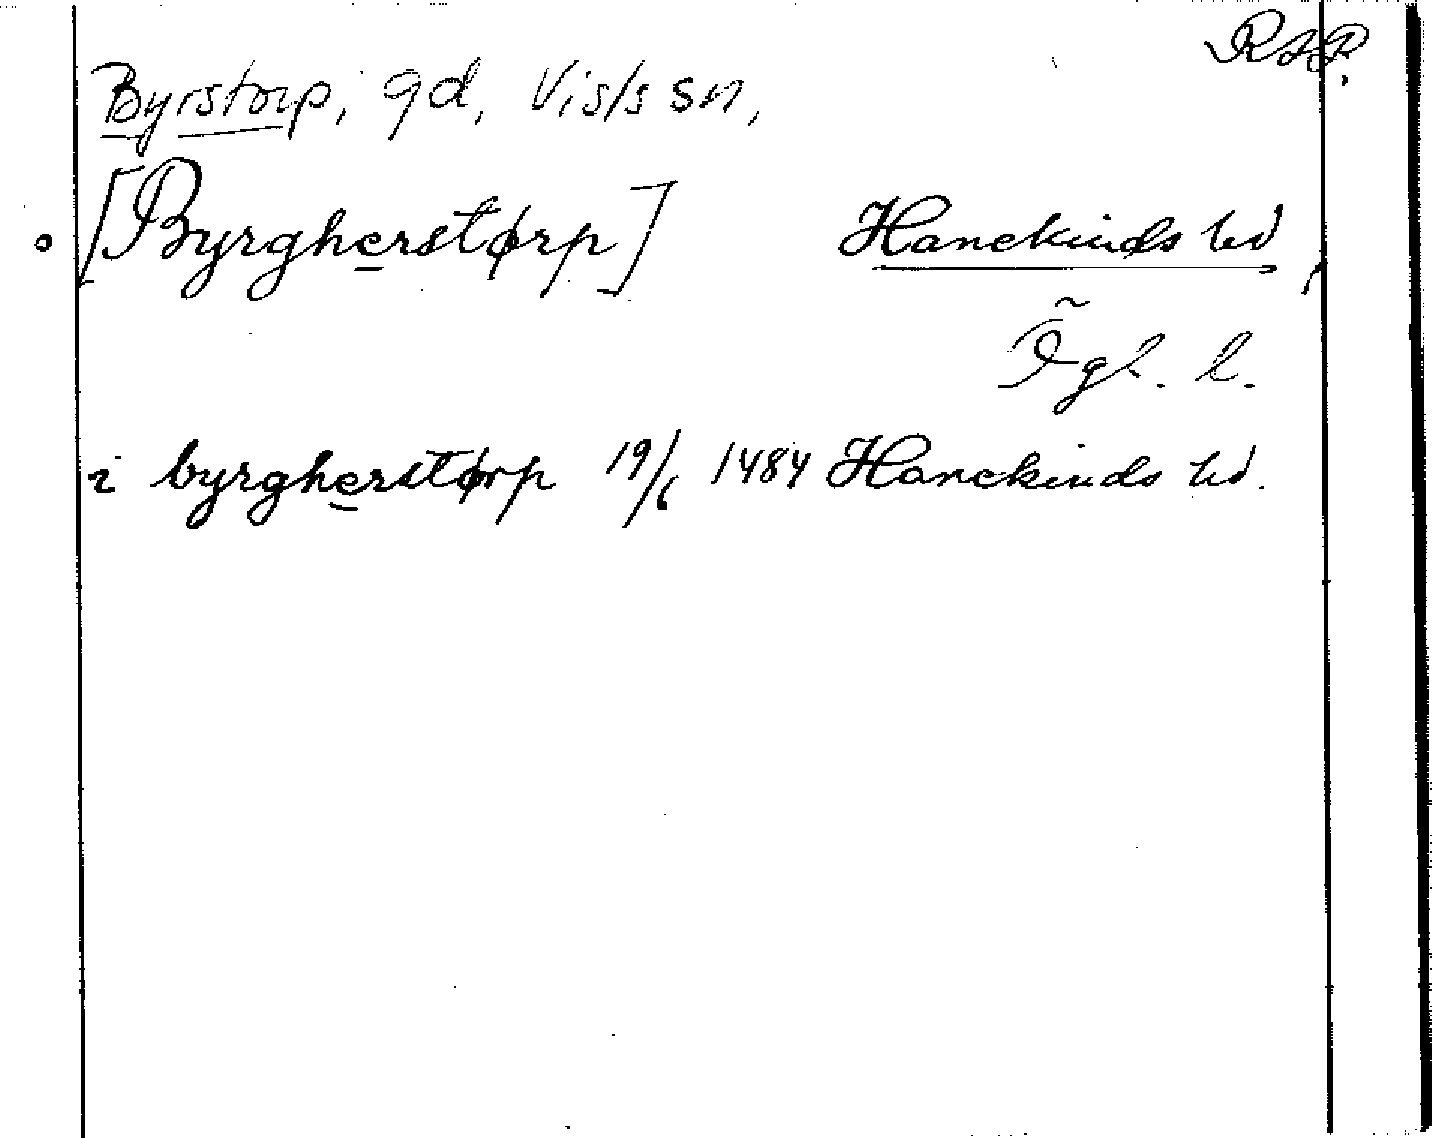 RAP.
Byrstorp, gd, Vists sn,
[Byrgherstørp] Hanekinds hd,
Ögl. l.
i byrgherstørp 19/6 1484 Hanekinds hd.